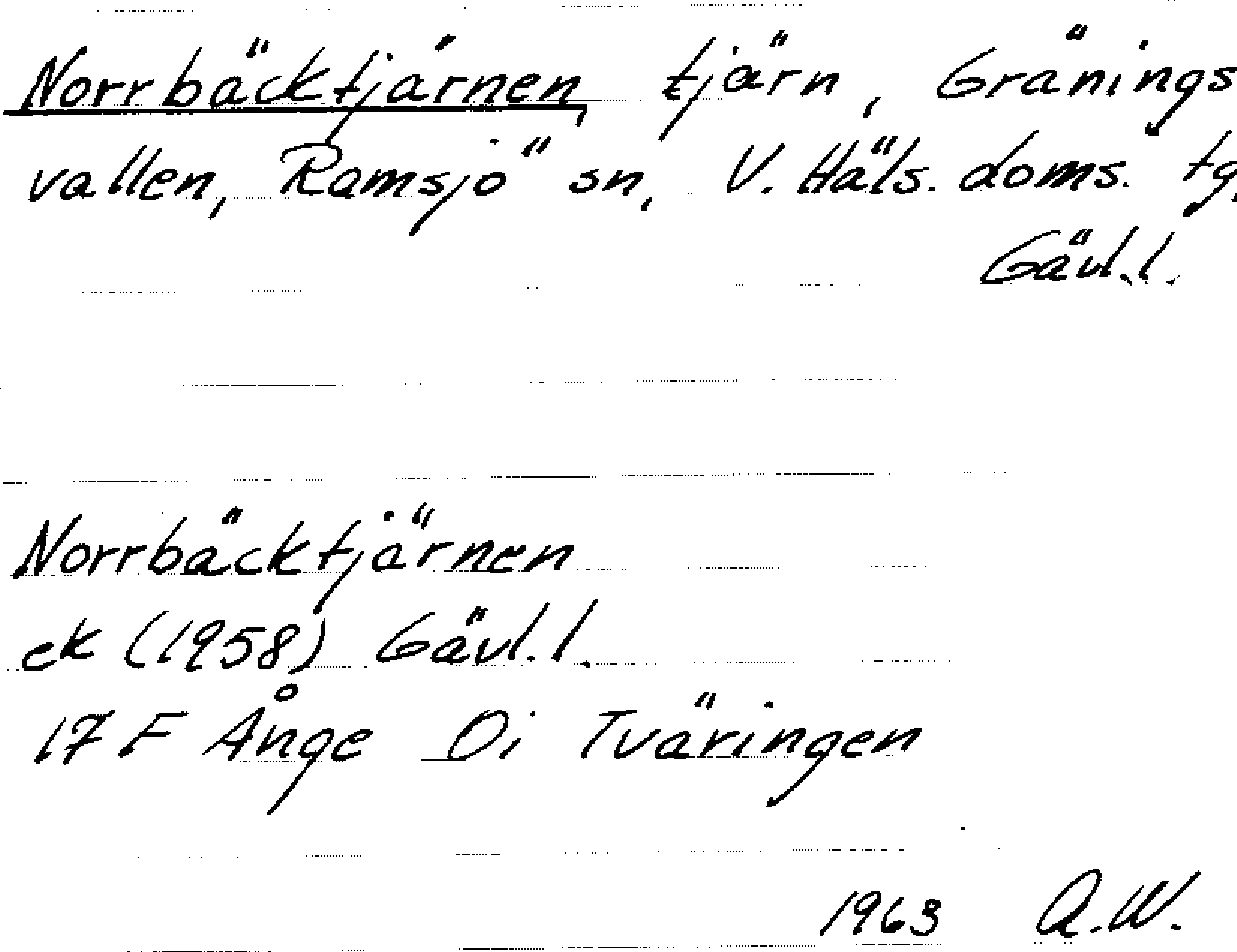 Norrbäcktjärnen, tjärn, Gränings
vallen, Ramsjö sn, V. Häls. doms. tg,
Gävl.l.
Norrbäcktjärnen
ek (1958) Gävl.l.
17 F Ånge 0i Tväringen
1963 A.W.